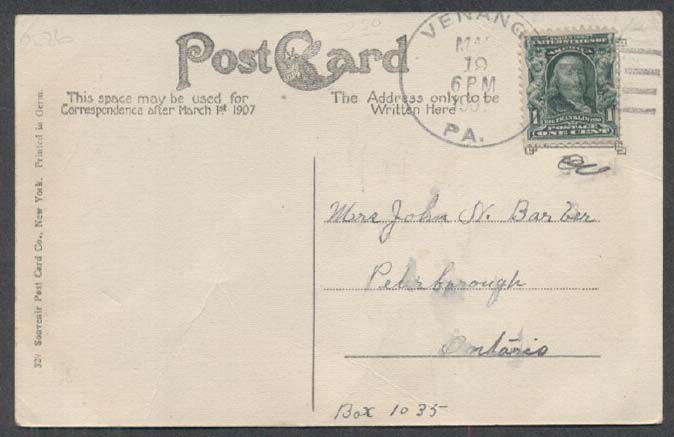 Post Card
This space may be used for
Correspondence after March 1st 1907
The Address only to be
Written Here
VENANG
MA
19
6 PM
PA.
UNITED STATES OF
AMERICA
1 1
FRANKLIN
POSTAGE
ONE CENT
Mrs John N. Barber
Peterborough
Ontario
Box 1035
Souvenir Post Card Co., New York. Printed in Germ.